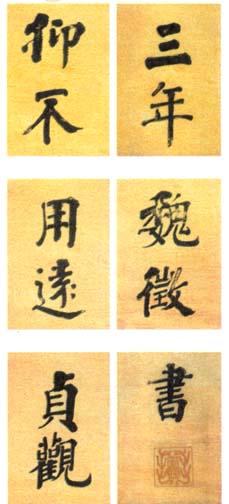 仰不
用遠
貞觀
三年
魏徵
書